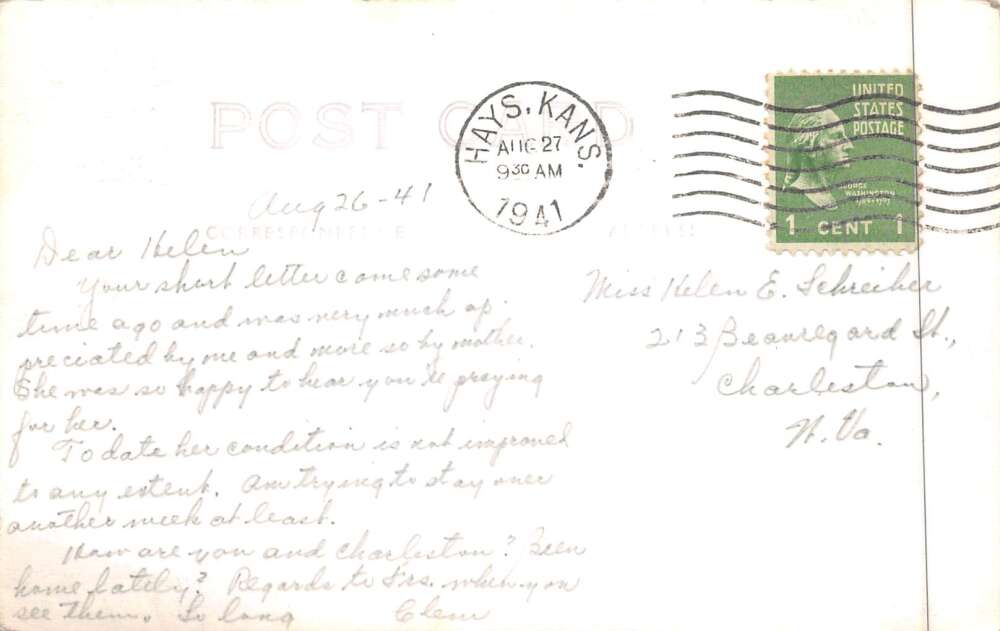 POST CARD
HAYS, KANS.
AUG 27
9 30 AM
1941
UNITED
STATES
POSTAGE
GEORGE
WASHINGTON
1 CENT 1
CORRESPONDENCE
ADDRESS
Aug 26-41
Dear Helen
Your short letter come some
time ago and was very much ap-
preciated by me and more so by mother.
She was so happy to hear you're praying
for her.
To date her condition is not improved
to any extent. Am trying to stay over
another week at least.
How are you and Charleston? Been
home lately? Regards to Srs. when you
see them. So long Clem
Miss Helen E. Schreiber
213 Beauregard St.,
Charleston,
W. Va.